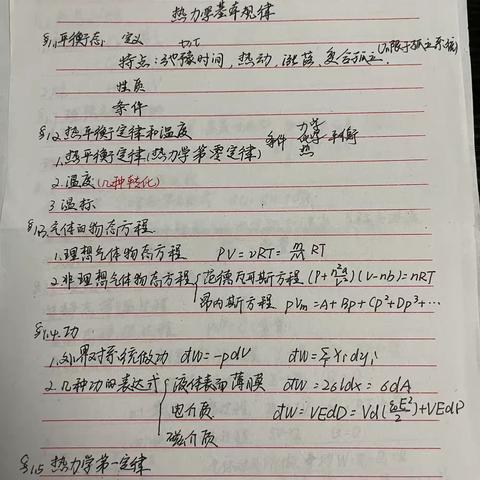 热力学基本规律
§1.1平衡态 定义
特点:弛豫时间,热动,涨落,复合孤立(不限于孤立系统)
性质
条件
§1.2热平衡定律和温度 条件 力学 化学 热 平衡
1.热平衡定律(热力学第零定律)
2.温度(几种转化)
3.温标
§1.3气体的物态方程
1.理想气体物态方程 PV=νRT=m/M RT
2.非理想气体物态方程{范德瓦耳斯方程(P+n²a/V²)(V-nb)=nRT
昂内斯方程 pVm=A+Bp+Cp²+Dp³+…
§1.4.功
1.外界对系统做功 đW=-pdV đW=Σ Yidyi
2.几种功的表达式{液体表面薄膜 đW=2σldx=σdA
电介质 đW=VEdD=Vd(ε₀E²/2)+VEdP
磁介质
§1.5 热力学第一定律